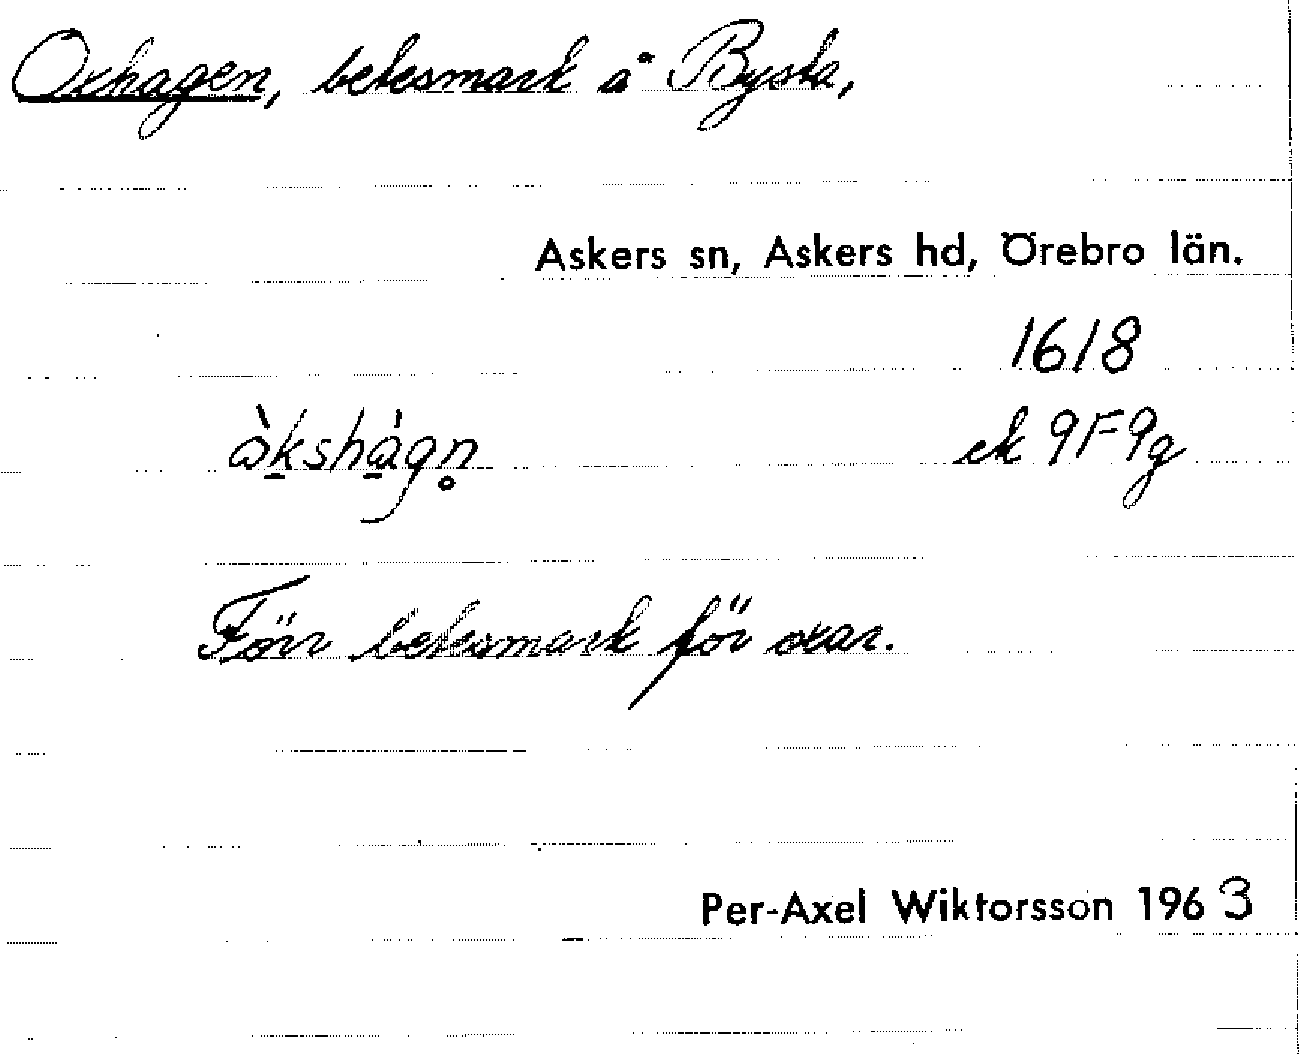 Oxhagen, betesmark å Bysta,
Askers sn, Askers hd, Örebro län.
1618
ek 9F9g
Förr betesmark för oxar.
Per-Axel Wiktorsson 1963